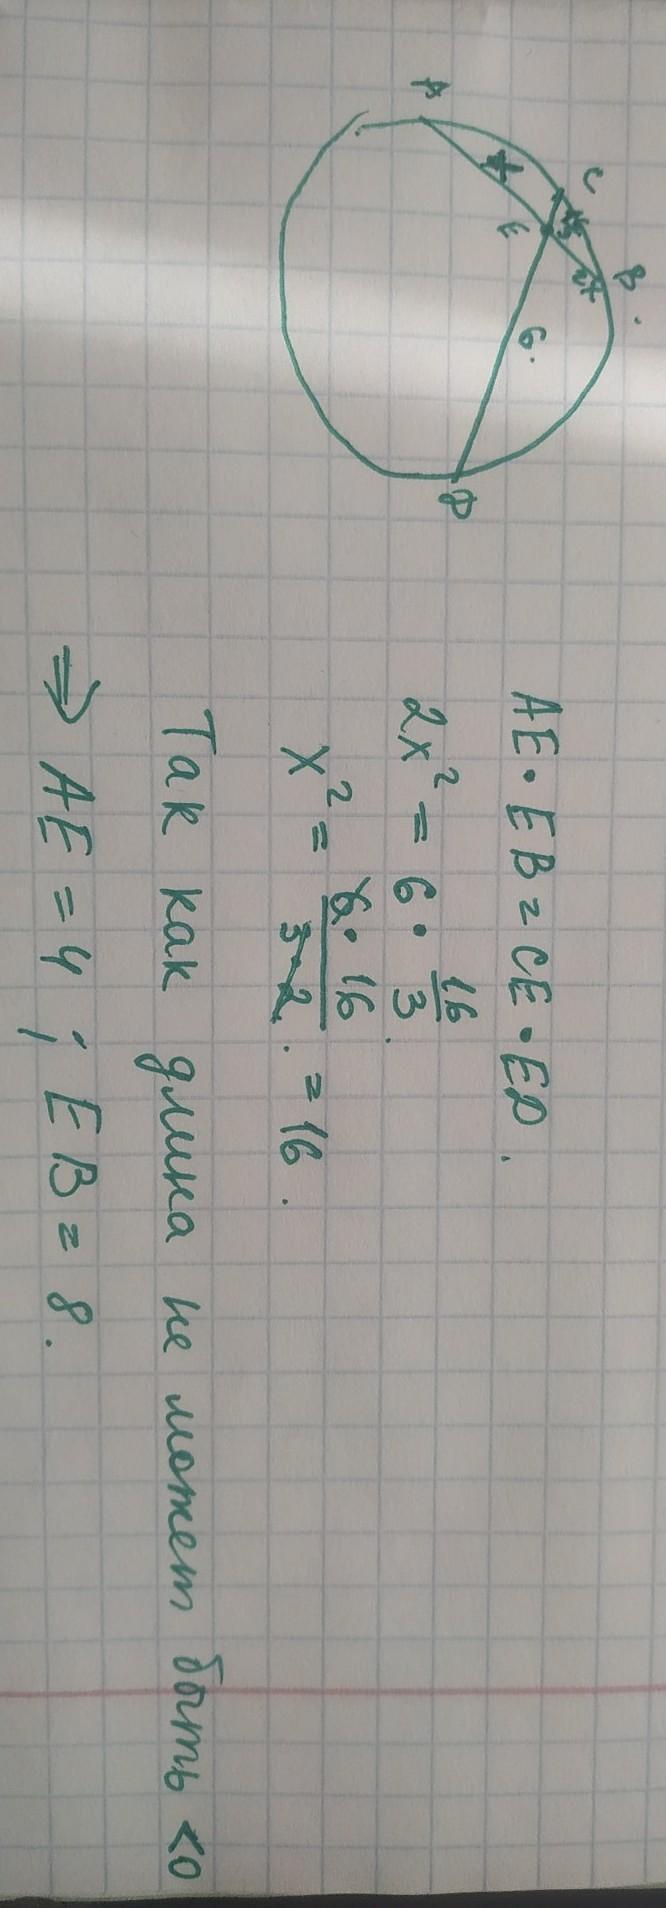 A
C
B
E
6.
D
AE · EB = CE · ED.
2x² = 6 · 16/3.
x² = 6·16/3·2. = 16.
Так как длина не может быть <0
⇒ AE = 4 ; EB = 8.